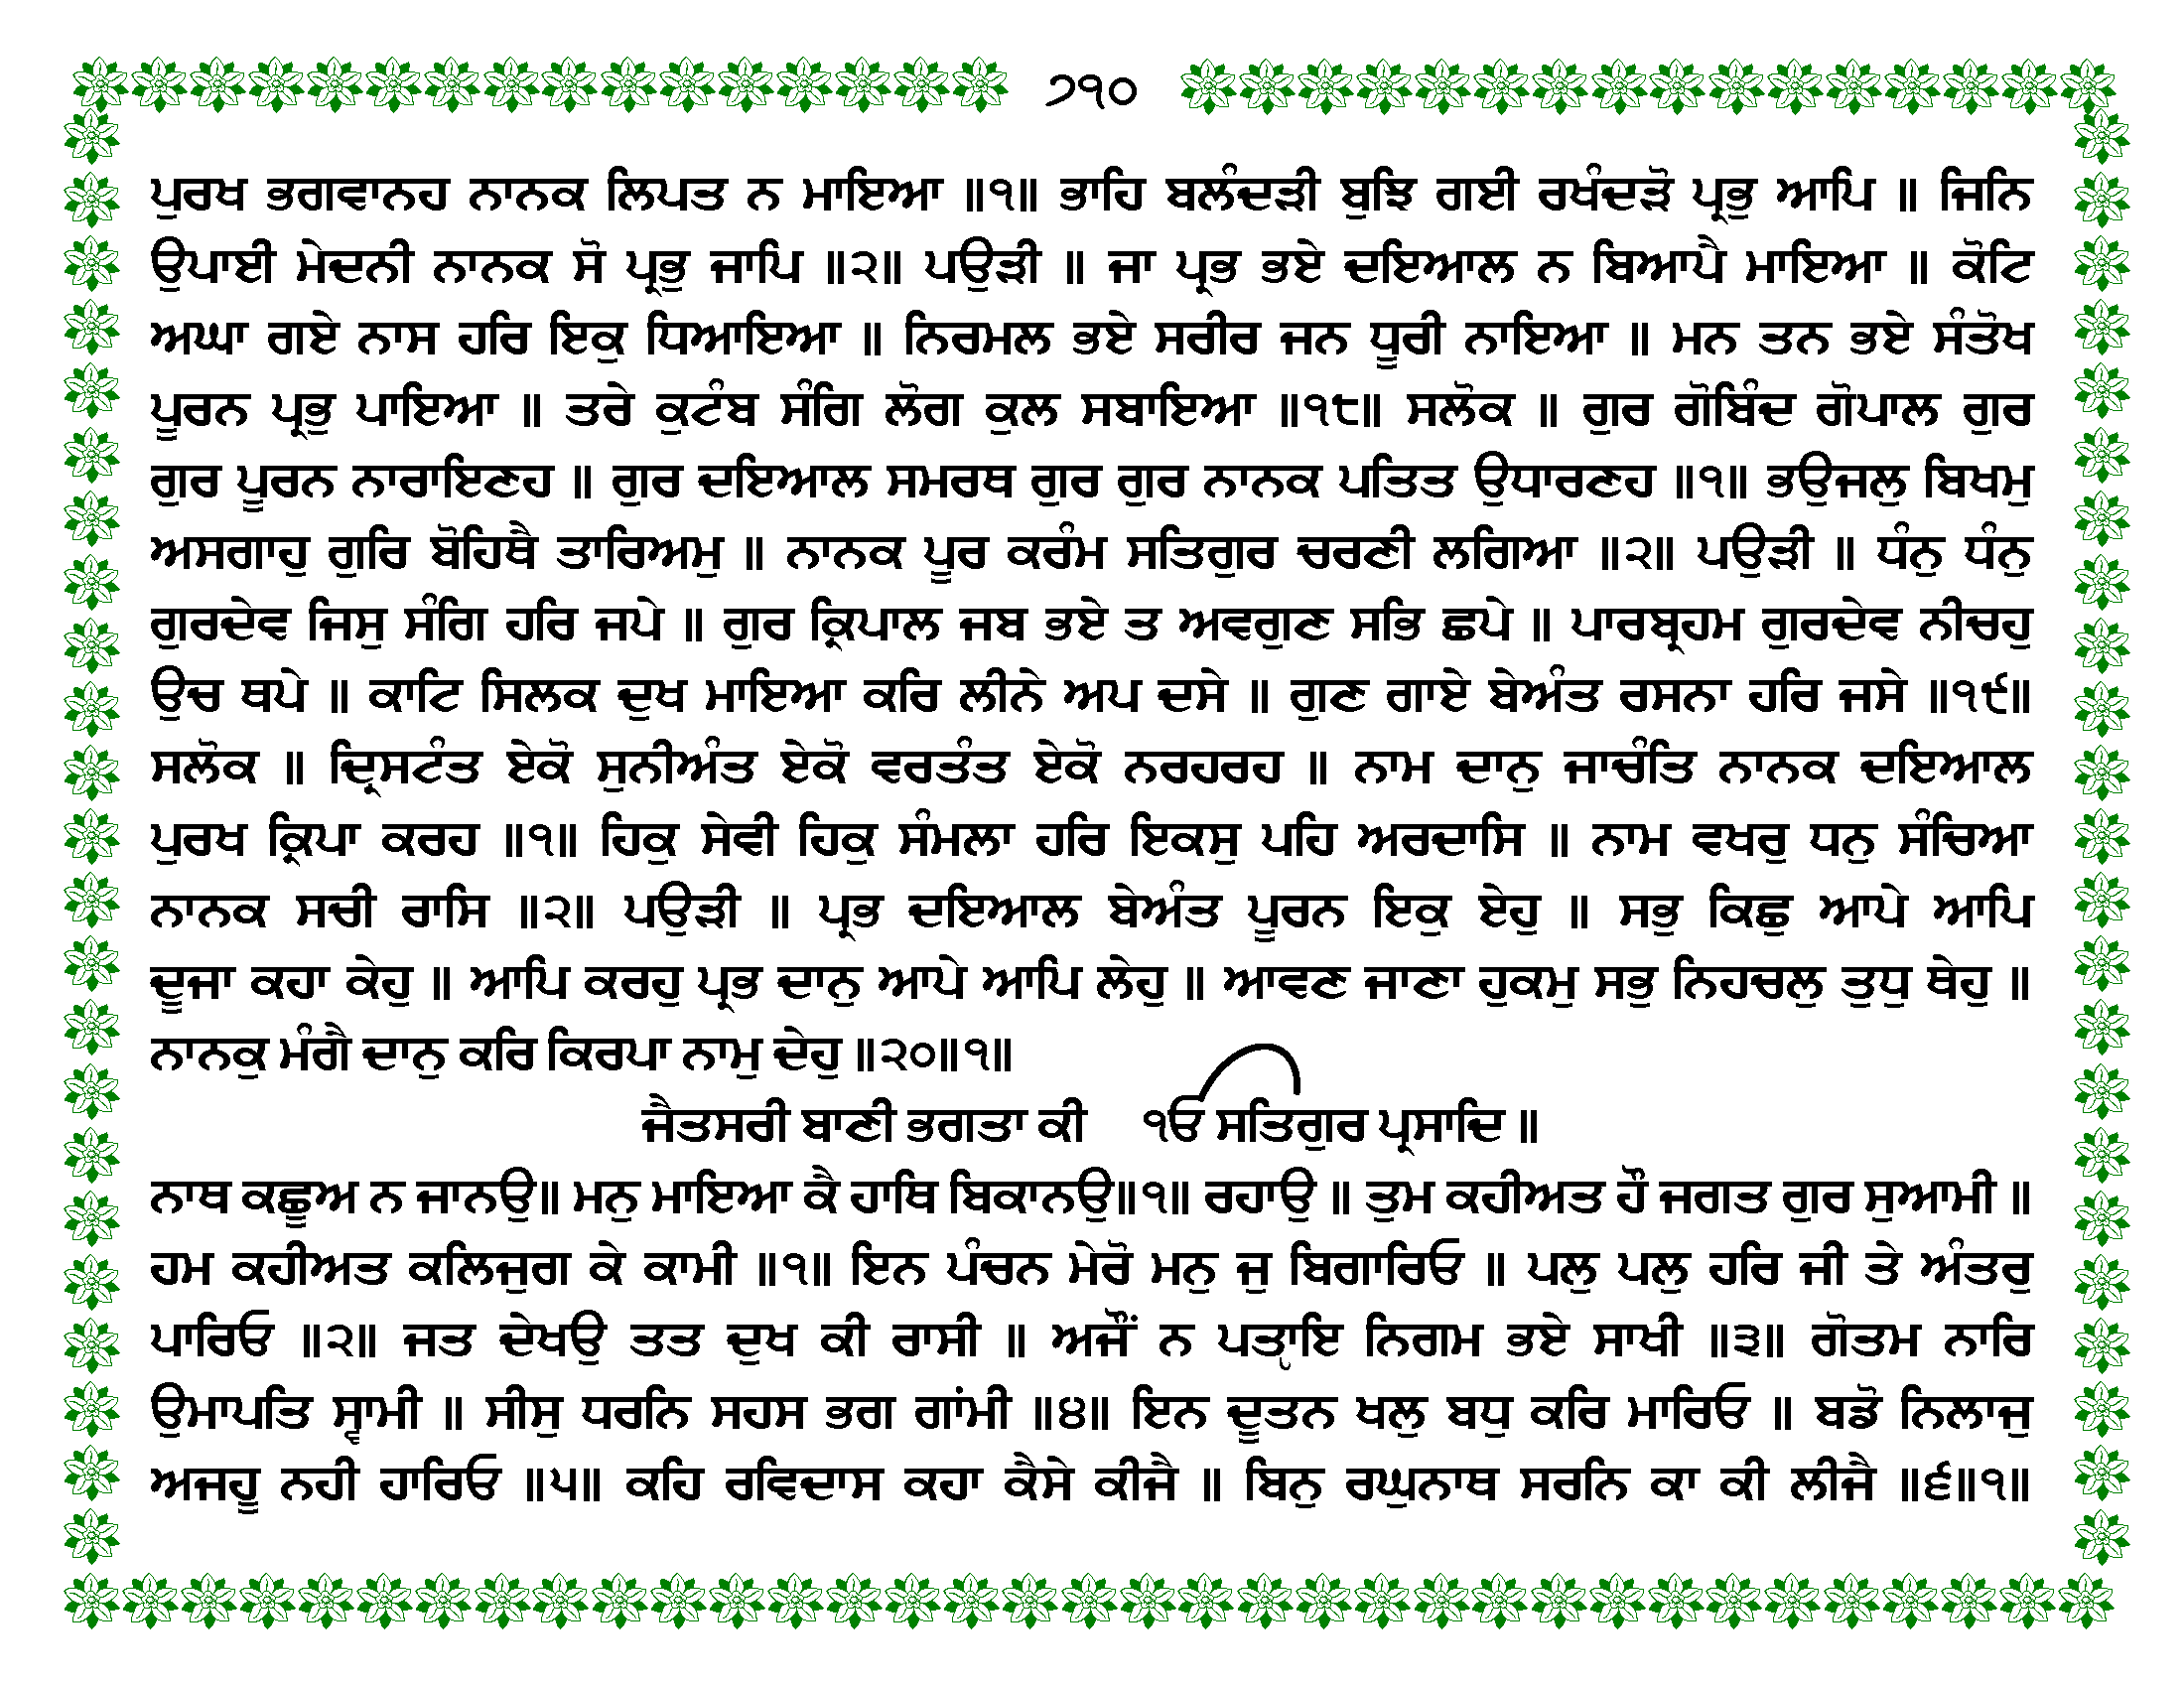 ੭੧੦
ਪੁਰਖ ਭਗਵਾਨਹ ਨਾਨਕ ਲਿਪਤ ਨ ਮਾਇਆ ॥੧॥ ਭਾਹਿ ਬਲੰਦੜੀ ਬੁਝਿ ਗਈ ਰਖੰਦੜੋ ਪ੍ਰਭੁ ਆਪਿ ॥ ਜਿਨਿ
ਉਪਾਈ ਮੇਦਨੀ ਨਾਨਕ ਸੋ ਪ੍ਰਭੁ ਜਾਪਿ ॥੨॥ ਪਉੜੀ ॥ ਜਾ ਪ੍ਰਭ ਭਏ ਦਇਆਲ ਨ ਬਿਆਪੈ ਮਾਇਆ ॥ ਕੋਟਿ
ਅਘਾ ਗਏ ਨਾਸ ਹਰਿ ਇਕੁ ਧਿਆਇਆ ॥ ਨਿਰਮਲ ਭਏ ਸਰੀਰ ਜਨ ਧੂਰੀ ਨਾਇਆ ॥ ਮਨ ਤਨ ਭਏ ਸੰਤੋਖ
ਪੂਰਨ ਪ੍ਰਭੁ ਪਾਇਆ ॥ ਤਰੇ ਕੁਟੰਬ ਸੰਗਿ ਲੋਗ ਕੁਲ ਸਬਾਇਆ ॥੧੮॥ ਸਲੋਕ ॥ ਗੁਰ ਗੋਬਿੰਦ ਗੋਪਾਲ ਗੁਰ
ਗੁਰ ਪੂਰਨ ਨਾਰਾਇਣਹ ॥ ਗੁਰ ਦਇਆਲ ਸਮਰਥ ਗੁਰ ਗੁਰ ਨਾਨਕ ਪਤਿਤ ਉਧਾਰਣਹ ॥੧॥ ਭਉਜਲੁ ਬਿਖਮੁ
ਅਸਗਾਹੁ ਗੁਰਿ ਬੋਹਿਥੈ ਤਾਰਿਅਮੁ ॥ ਨਾਨਕ ਪੂਰ ਕਰੰਮ ਸਤਿਗੁਰ ਚਰਣੀ ਲਗਿਆ ॥੨॥ ਪਉੜੀ ॥ ਧੰਨੁ ਧੰਨੁ
ਗੁਰਦੇਵ ਜਿਸੁ ਸੰਗਿ ਹਰਿ ਜਪੇ ॥ ਗੁਰ ਕ੍ਰਿਪਾਲ ਜਬ ਭਏ ਤ ਅਵਗੁਣ ਸਭਿ ਛਪੇ ॥ ਪਾਰਬ੍ਰਹਮ ਗੁਰਦੇਵ ਨੀਚਹੁ
ਉਚ ਥਪੇ ॥ ਕਾਟਿ ਸਿਲਕ ਦੁਖ ਮਾਇਆ ਕਰਿ ਲੀਨੇ ਅਪ ਦਸੇ ॥ ਗੁਣ ਗਾਏ ਬੇਅੰਤ ਰਸਨਾ ਹਰਿ ਜਸੇ ॥੧੯॥
ਸਲੋਕ ॥ ਦ੍ਰਿਸਟੰਤ ਏਕੋ ਸੁਨੀਅੰਤ ਏਕੋ ਵਰਤੰਤ ਏਕੋ ਨਰਹਰਹ ॥ ਨਾਮ ਦਾਨੁ ਜਾਚੰਤਿ ਨਾਨਕ ਦਇਆਲ
ਪੁਰਖ ਕ੍ਰਿਪਾ ਕਰਹ ॥੧॥ ਹਿਕੁ ਸੇਵੀ ਹਿਕੁ ਸੰਮਲਾ ਹਰਿ ਇਕਸੁ ਪਹਿ ਅਰਦਾਸਿ ॥ ਨਾਮ ਵਖਰੁ ਧਨੁ ਸੰਚਿਆ
ਨਾਨਕ ਸਚੀ ਰਾਸਿ ॥੨॥ ਪਉੜੀ ॥ ਪ੍ਰਭ ਦਇਆਲ ਬੇਅੰਤ ਪੂਰਨ ਇਕੁ ਏਹੁ ॥ ਸਭੁ ਕਿਛੁ ਆਪੇ ਆਪਿ
ਦੂਜਾ ਕਹਾ ਕੇਹੁ ॥ ਆਪਿ ਕਰਹੁ ਪ੍ਰਭ ਦਾਨੁ ਆਪੇ ਆਪਿ ਲੇਹੁ ॥ ਆਵਣ ਜਾਣਾ ਹੁਕਮੁ ਸਭੁ ਨਿਹਚਲੁ ਤੁਧੁ ਥੇਹੁ ॥
ਨਾਨਕੁ ਮੰਗੈ ਦਾਨੁ ਕਰਿ ਕਿਰਪਾ ਨਾਮੁ ਦੇਹੁ ॥੨੦॥੧॥
ਜੈਤਸਰੀ ਬਾਣੀ ਭਗਤਾ ਕੀ ੴ ਸਤਿਗੁਰ ਪ੍ਰਸਾਦਿ ॥
ਨਾਥ ਕਛੂਅ ਨ ਜਾਨਉ॥ ਮਨੁ ਮਾਇਆ ਕੈ ਹਾਥਿ ਬਿਕਾਨਉ॥੧॥ ਰਹਾਉ ॥ ਤੁਮ ਕਹੀਅਤ ਹੌ ਜਗਤ ਗੁਰ ਸੁਆਮੀ ॥
ਹਮ ਕਹੀਅਤ ਕਲਿਜੁਗ ਕੇ ਕਾਮੀ ॥੧॥ ਇਨ ਪੰਚਨ ਮੇਰੋ ਮਨੁ ਜੁ ਬਿਗਾਰਿਓ ॥ ਪਲੁ ਪਲੁ ਹਰਿ ਜੀ ਤੇ ਅੰਤਰੁ
ਪਾਰਿਓ ॥੨॥ ਜਤ ਦੇਖਉ ਤਤ ਦੁਖ ਕੀ ਰਾਸੀ ॥ ਅਜੌਂ ਨ ਪਤ੍ਯਾਇ ਨਿਗਮ ਭਏ ਸਾਖੀ ॥੩॥ ਗੋਤਮ ਨਾਰਿ
ਉਮਾਪਤਿ ਸ੍ਵਾਮੀ ॥ ਸੀਸੁ ਧਰਨਿ ਸਹਸ ਭਗ ਗਾਂਮੀ ॥੪॥ ਇਨ ਦੂਤਨ ਖਲੁ ਬਧੁ ਕਰਿ ਮਾਰਿਓ ॥ ਬਡੋ ਨਿਲਾਜੁ
ਅਜਹੂ ਨਹੀ ਹਾਰਿਓ ॥੫॥ ਕਹਿ ਰਵਿਦਾਸ ਕਹਾ ਕੈਸੇ ਕੀਜੈ ॥ ਬਿਨੁ ਰਘੁਨਾਥ ਸਰਨਿ ਕਾ ਕੀ ਲੀਜੈ ॥੬॥੧॥